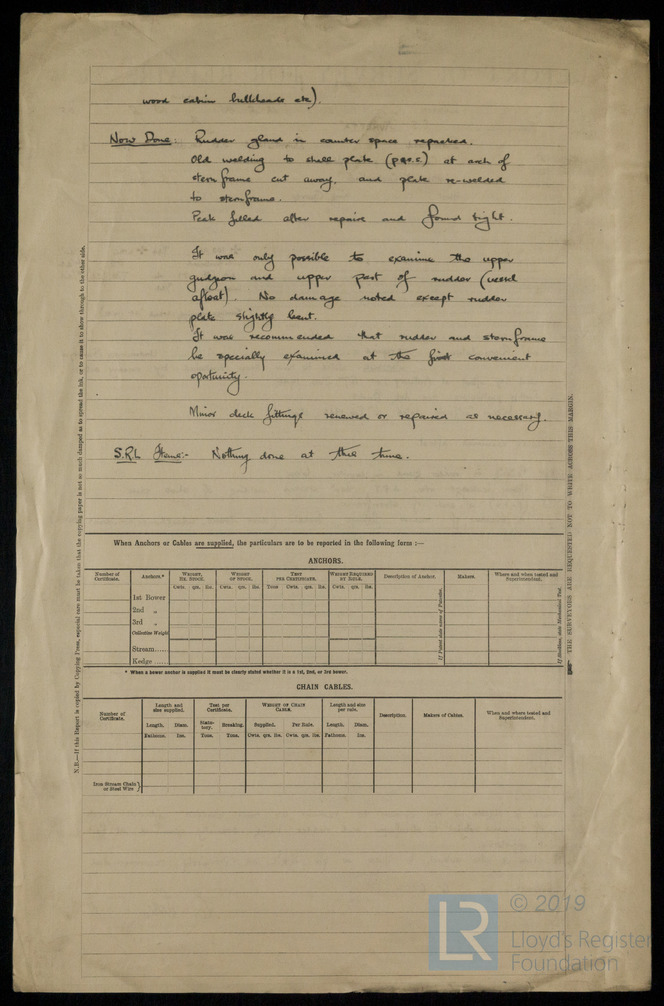 wood cabin bulkheads etc).
Now Done: Rudder gland in counter space repacked.
Old welding to shell plate (p&s.c) at arch of
sternframe cut away, and plate re-welded
to sternframe.
Peak filled after repairs and found tight.
It was only possible to examine the upper
gudgeon and upper part of rudder (vessel
afloat). No damage noted except rudder
plate slightly bent.
It was recommended that rudder and sternframe
be specially examined at the first convenient
oportunity.
Minor deck fittings renewed or repaired as necessary.
S.RL Items:- Nothing done at this time.
N.B.—If this Report is copied by Copying Press, especial care must be taken that the copying paper is not so much damped as to spread the ink, or to cause it to show through to the other side.
THE SURVEYORS ARE REQUESTED NOT TO WRITE ACROSS THIS MARGIN.
When Anchors or Cables are supplied, the particulars are to be reported in the following form :—
ANCHORS.
Number of Certificate. Anchors.* WEIGHT, EX. STOCK. WEIGHT OF STOCK. TEST PER CERTIFICATE. WEIGHT REQUIRED BY RULE. Description of Anchor. Makers. Where and when tested and Superintendent.
Cwts. qrs. lbs. Cwts. qrs. lbs. Tons Cwts. qrs. lbs. Cwts. qrs. lbs.
1st Bower
2nd „
3rd „
Collective Weight
Stream.....
Kedge .....
If Patent state name of Patentee.
* When a bower anchor is supplied it must be clearly stated whether it is a 1st, 2nd, or 3rd bower.
CHAIN CABLES.
Number of Certificate. Length and size supplied. Test per Certificate. WEIGHT OF CHAIN CABLE. Length and size per rule. Description. Makers of Cables. When and where tested and Superintendent.
Length. Diam. Statutory. Breaking. Supplied. Per Rule. Length. Diam.
Fathoms. Ins. Tons. Tons. Cwts. qrs. lbs. Cwts. qrs. lbs. Fathoms. Ins.
Iron Stream Chain or Steel Wire }
LR
© 2019
Lloyd's Register
Foundation